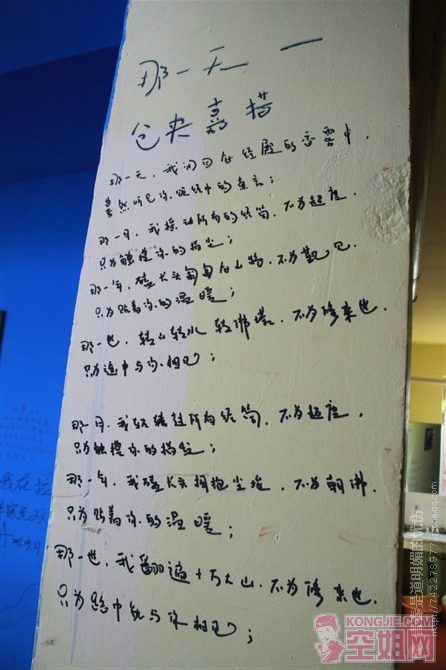 那一天 一
仓央嘉措
那一天，我闭目在经殿的香雾中，
蓦然听见你颂经中的真言；
那一月，我摇动所有的经筒，不为超度，
只为触摸你的指尖；
那一年，磕长头匍匐在山路，不为觐见，
只为贴着你的温暖；
那一世，转山转水转佛塔，不为修来世，
只为途中与你相见；
那一月，我轻转过所有经筒，不为超度，
只为触摸你的指纹；
那一年，我磕长头拥抱尘埃，不为朝佛，
只为贴着你的温暖；
那一世，我翻遍十万大山，不为修来世，
只为路中能与你相见；
我在拉
KONGJIE.COM
空姐网